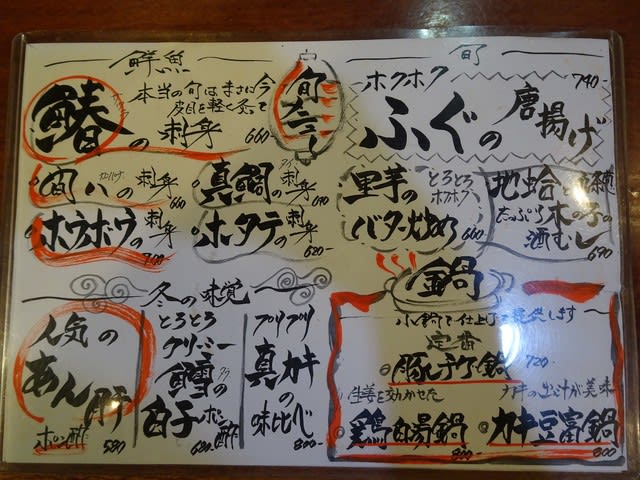 鮮魚
旬メニュー
旬
本当の旬はまさに今
皮目を軽く炙って
鰆の刺身 660
間八の刺身 660
真鯛の刺身 670
ホウホウの刺身 700
ホタテの刺身 620-
ホクホク
ふぐの唐揚げ 740-
里芋の
とろとろ
ホクホク
バター炒め 660
地蛤と
たっぷり木の子の
酒むし 670
冬の味覚
人気の
あん肝
ポン酢 580
とろとろ
クリーミー
鱈の
白子ポン酢 680-
プリプリ
真カキの
味比べ 800-
鍋
小鍋で仕上げて提供します
定番
豚チゲ鍋 720-
生姜を効かせた
鶏白湯鍋 800-
カキの出汁が美味
カキ豆富鍋 800